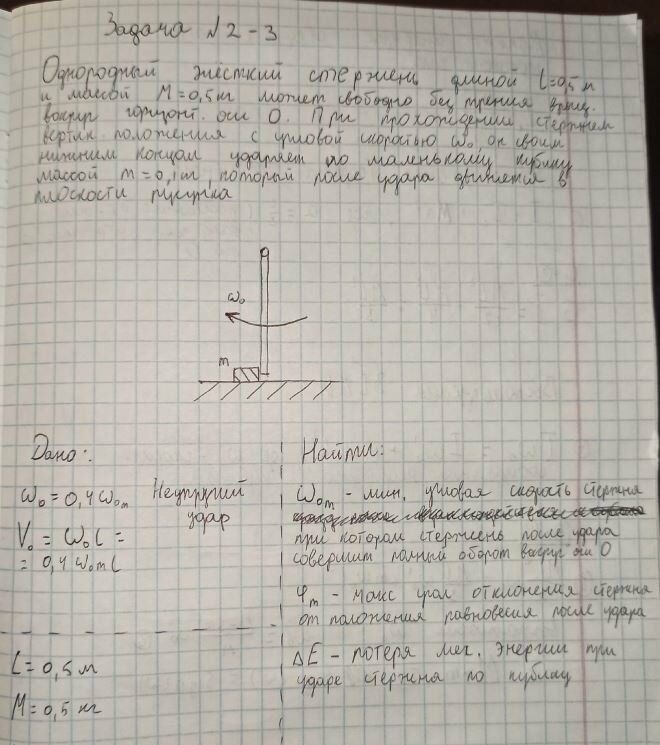 Задача №2-3
Однородный жёсткий стержень длиной L=0,5 м
и массой M=0,5 кг может свободно без трения вращ.
вокруг горизонт. оси O. При прохождении стержнем
вертик. положения с угловой скоростью ω₀, он своим
нижним концом ударяет по маленькому кубику
массой m=0,1 кг, который после удара движется в
плоскости рисунка
ω₀
m
Дано:
ω₀ = 0,4 ω₀ₘ Неупругий
удар
V₀ = ω₀ L =
= 0,4 ω₀ₘ L
L = 0,5 м
M = 0,5 кг
Найти:
ω₀ₘ - мин. угловая скорость стержня
при котором стержень после удара
совершит полный оборот вокруг оси O
φₘ - макс угол отклонения стержня
от положения равновесия после удара
ΔE - потеря мех. энергии при
ударе стержня по кубику